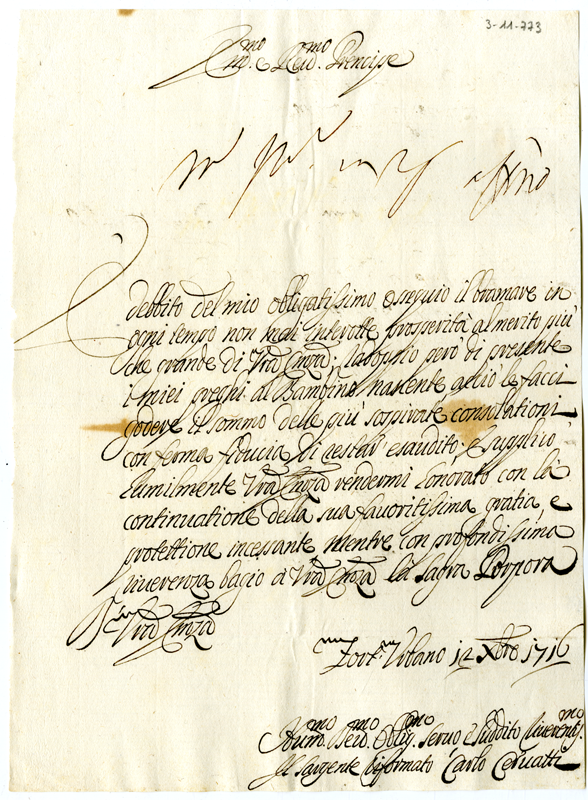 3-11-773
Em.mo e Reu.mo Prencipe
È
debbito del mio obligatissimo ossequio il bramare in
ogni tempo non mai interotte prosperità al merito più
che grande di Vra Emza, raccoglio però di presente
i miei preghi al Bambino nascente acciò le facci
godere il sommo delle più sospirate consolationi
con ferma fiducia di restar esaudito, e supplico
humilmente Vra Emza rendermi honorato con la
continuatione della sua fauoritissima gratia, e
protettione incessante mentre con profondissima
riuerenza bacio à Vra Emza la Sagra Porpora
Vra Emza
Fort. Urbano 12 Xbre 1716
Hum.mo Deu.mo Oblig.mo Seruo e Suddito Riuerent.mo
Il Sargente Riformato Carlo